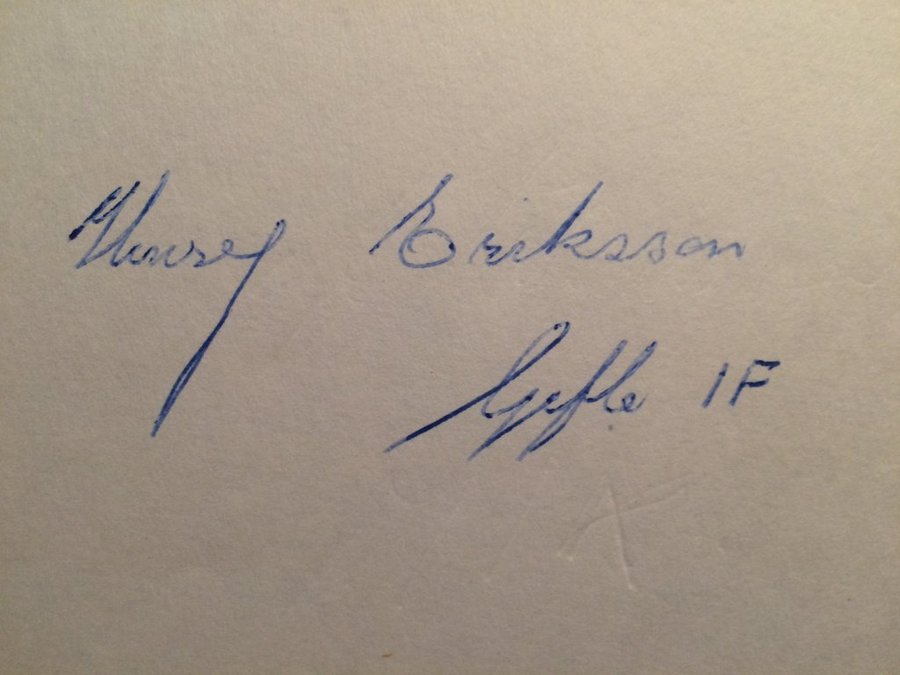 Henry Eriksson
Gefle IF